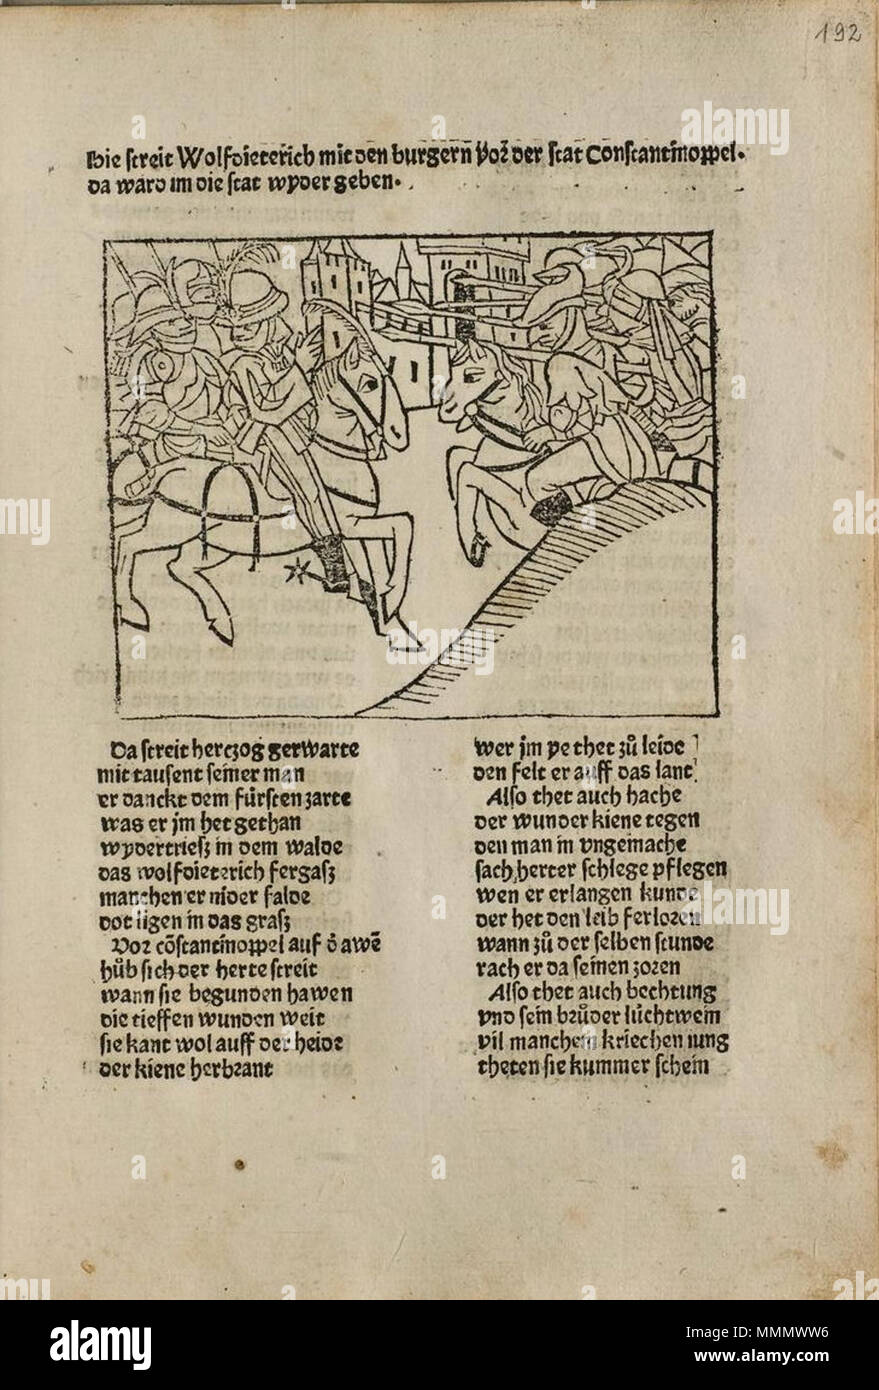 192
Hie streit Wolfdieterich mit den burgern̄ Vor der stat Constantinoppel.
da ward im die stat wyder geben.
Da streit hertzog gerwarte
mit tausent seiner man
er danckt dem fürsten zarte
was er jm het gethan
wydertriesz in dem walde
das wolfdieterich fergasz
manchen er nider falde
dot ligen in das grasz
Vor cōstantinoppel auf d̄ awē
hůb sich der herte streit
wann sie begunden hawen
die tieffen wunden weit
sie kant wol auff der heide
der kiene herbrant
wer jm ye thet zů leide
den felt er auff das lant
Also thet auch hache
der wunder kiene tegen
den man in vngemache
sach herter schlege pflegen
wen er erlangen kunde
der het den leib ferloren
wann zů der selben stunde
rach er da seinen zoren
Also thet auch bechtung
vnd sein brůder lůchtwein
vil manchem kriechen iung
theten sie kummer schein
alamy
Image ID: MMMWW6
www.alamy.com